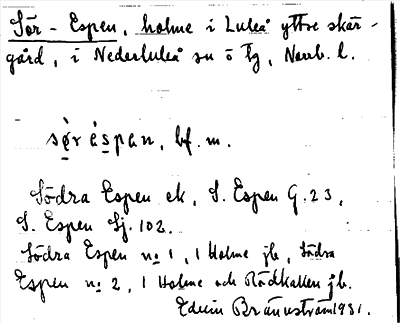 Sör-Espen, holme i Luleå yttre skär-
gård, i Nederluleå sn o tg, Norrb. l.
sø̀r éspan, bf. m.
Södra Espen ek, S. Espen G. 23,
S. Espen Sj. 102.
Södra Espen nº 1, 1 Holme jb, Södra
Espen nº 2, 1 Holme och Rödkallen jb.
Edvin Brännström 1931.